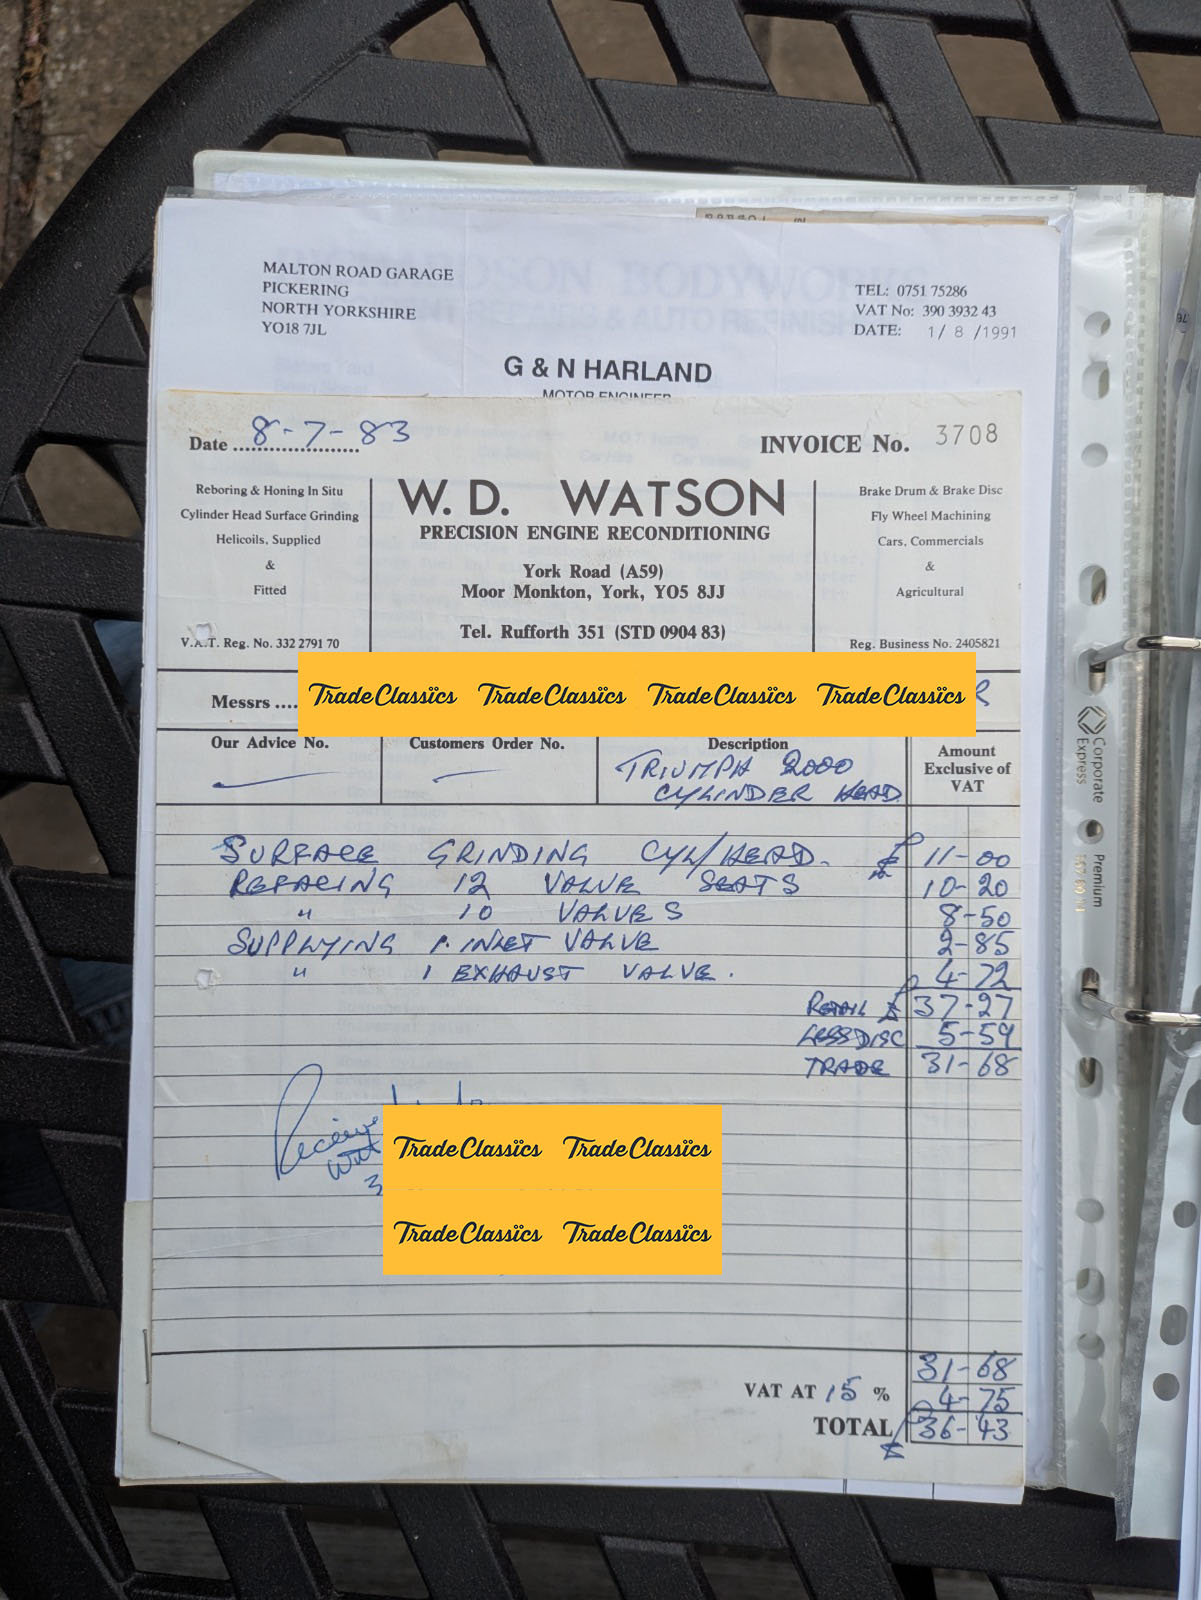 MALTON ROAD GARAGE
PICKERING
NORTH YORKSHIRE
YO18 7JL
TEL: 0751 75286
VAT No: 390 3932 43
DATE: 1/ 8 /1991
G & N HARLAND
MOTOR ENGINEER
Date 8-7-83
INVOICE No. 3708
Reboring & Honing In Situ
Cylinder Head Surface Grinding
Helicoils, Supplied
&
Fitted
V.A.T. Reg. No. 332 2791 70
W. D. WATSON
PRECISION ENGINE RECONDITIONING
York Road (A59)
Moor Monkton, York, YO5 8JJ
Tel. Rufforth 351 (STD 0904 83)
Brake Drum & Brake Disc
Fly Wheel Machining
Cars, Commercials
&
Agricultural
Reg. Business No. 2405821
Messrs ....
TradeClassics TradeClassics TradeClassics TradeClassics
R
Our Advice No.
Customers Order No.
Description
TRIUMPH 2000
CYLINDER HEAD
Amount
Exclusive of
VAT
SURFACE GRINDING CYL/HEAD. £ 11-00
REFACING 12 VALVE SEATS 10-20
" 10 VALVES 8-50
SUPPLYING 1. INLET VALVE 2-85
" 1 EXHAUST VALVE. 4-72
RETAIL £ 37-27
LESS DISC 5-59
TRADE 31-68
Receive
with
3
TradeClassics TradeClassics
TradeClassics TradeClassics
31-68
VAT AT 15 % 4-75
TOTAL £ 36-43
Corporate
Express
Premium